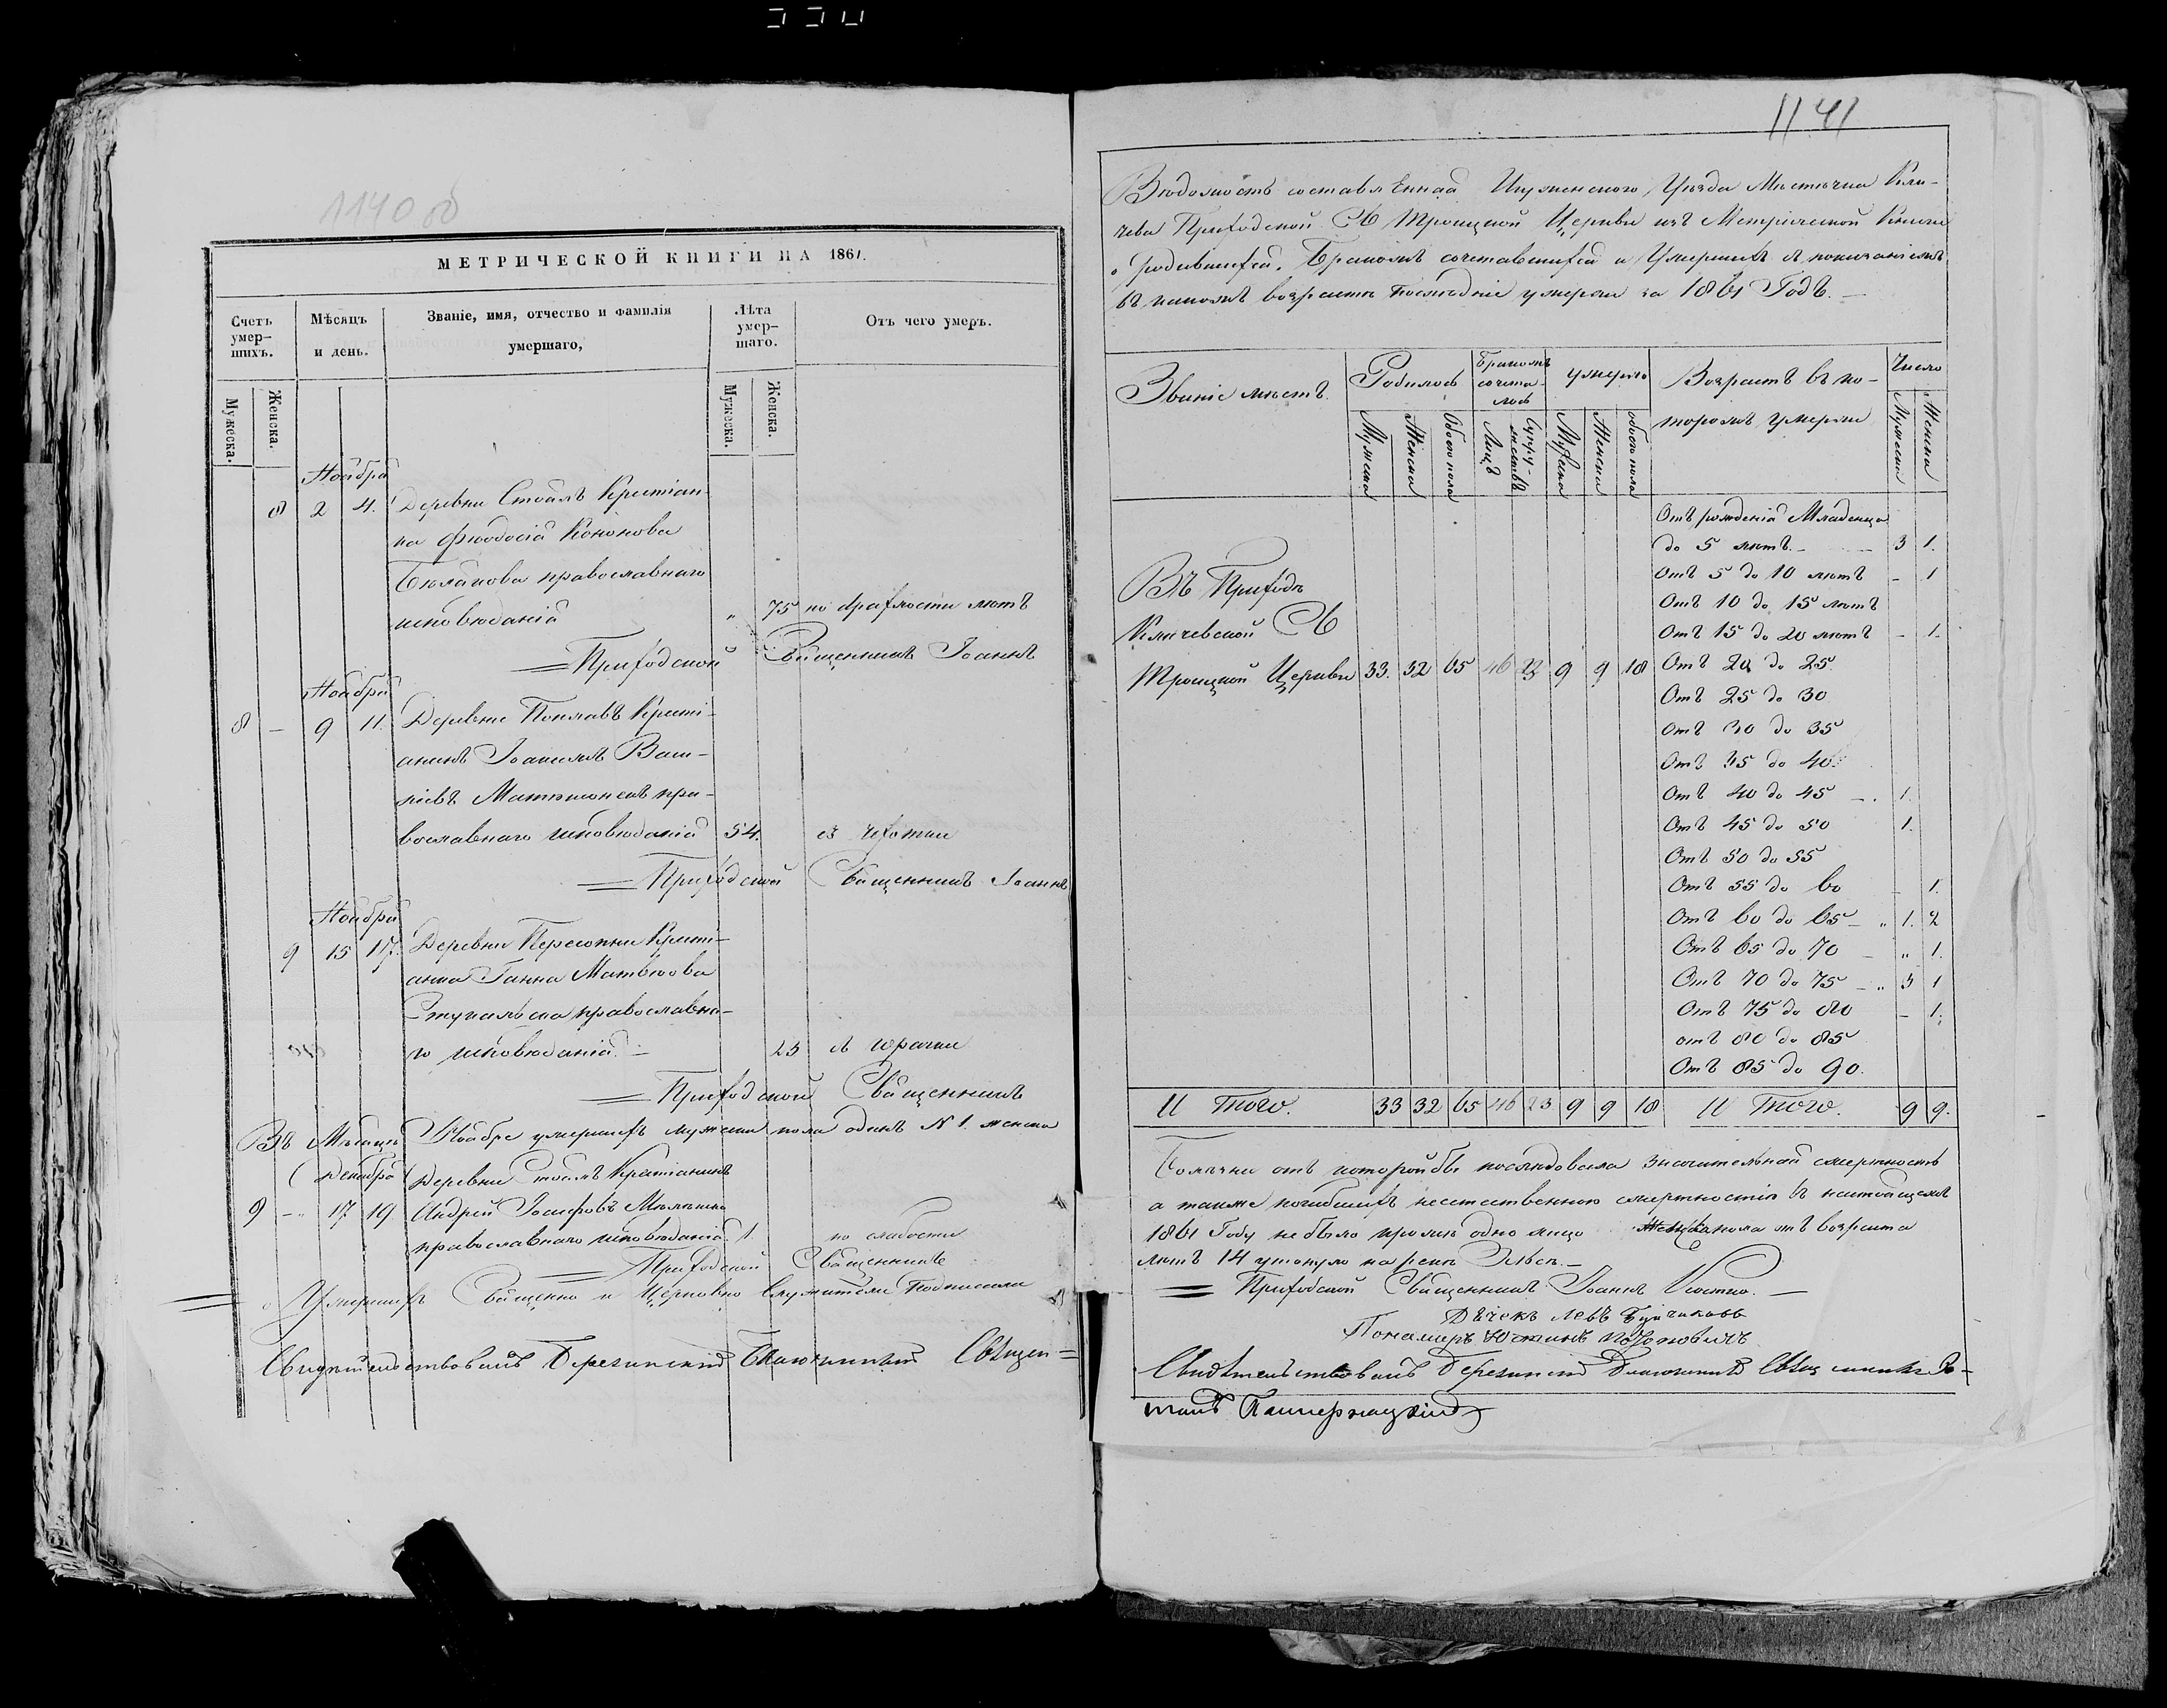 1140 об
МЕТРИЧЕСКОЙ КНИГИ НА 1861.
Счетъ умер-шихъ.
Мѣсяцъ и день.
Званіе, имя, отчество и фамилія умершаго,
Лѣта умер-шаго.
Отъ чего умеръ.
Мужеска.
Женска.
Мужеска.
Женска.
Ноября
8 2 4. Деревни Столъ Крестіан-
ка Феодосія Кононова
православнаго
исповѣданія " 75 по дряхлости лѣтъ
Приходской Священникъ Іоаннъ
Ноября
8 – 9 11. Деревни Поплавъ Крести-
анинъ Іоакимъ Васи-
ліевъ пра-
вославнаго исповѣданія 54. съ чахотки
Приходской Священникъ Іоаннъ
Ноября
9 15 17. Деревни Пересопни Крести-
анка Ганна Матвѣева
православна-
го исповѣданія. – 23 съ горячки
Приходской Священникъ
Въ Мѣсяцѣ Ноябре умершихъ мужеска пола одинъ N 1. женска
Декабря Деревни Столъ Крестіанинъ
9 – 17 19. Андрей Іосифовъ
православнаго исповѣданія 1. по слабости
Приходской Священникъ
Умершихъ Священно и Церковно Служители Подписали
Свидѣтельствовалъ Березинскій Благочинный Священ=
1141
Вѣдомость составленная Игуменского Уѣзда Мѣстечка Кли-
чева Приходской Св Троицкой Церкви изъ Метрической Книги
о родившихся, Бракомъ сочетавшихся и Умершихъ съ показаніемъ
въ какомъ возрастѣ послѣдніе умерли за 1861 Годъ. –
Званіе мѣстъ.
Родилось
Бракомъ сочета-лось
умерло
Возрастъ въ ко-
торомъ умерли
Число
Мужеска
Женска
Обоего пола
Лицъ
Супру-жествъ
Мужеска
Женска
обоего пола
Мужеска
Женска
Отъ рожденія Младенца
до 5 лѣтъ. – 3 1.
Отъ 5 до 10 лѣтъ – 1
Отъ 10 до 15 лѣтъ
Отъ 15 до 20 лѣтъ – 1.
Въ Приходѣ
Кличевской Св
Троицкой Церкви 33. 32 65 46 23 9 9 18
Отъ 20 до 25.
Отъ 25 до 30
Отъ 30 до 35
Отъ 35 до 40.
Отъ 40 до 45 – . 1.
Отъ 45 до 50 1.
Отъ 50 до 55
Отъ 55 до 60 – 1.
Отъ 60 до 65 – " 1. 2
Отъ 65 до 70 – " 1.
Отъ 70 до 75 – " 3 1
Отъ 75 до 80 – 1.
отъ 80 до 85
Отъ 85 до 90.
И того. 33 32 65 46 23 9 9 18 И того. 9 9.
отъ которой бы послѣдовала значительная смертность
а также погибшихъ неестественною смертностію въ настоящемъ
1861 Году не было кромѣ одно лицо Женска пола отъ возраста
лѣтъ 14 утонуло на рекѣ –
Приходской Священникъ Іоаннъ –
Дьячекъ Левъ
Пономарь
Свидѣтельствовалъ Березинскій Благочинный